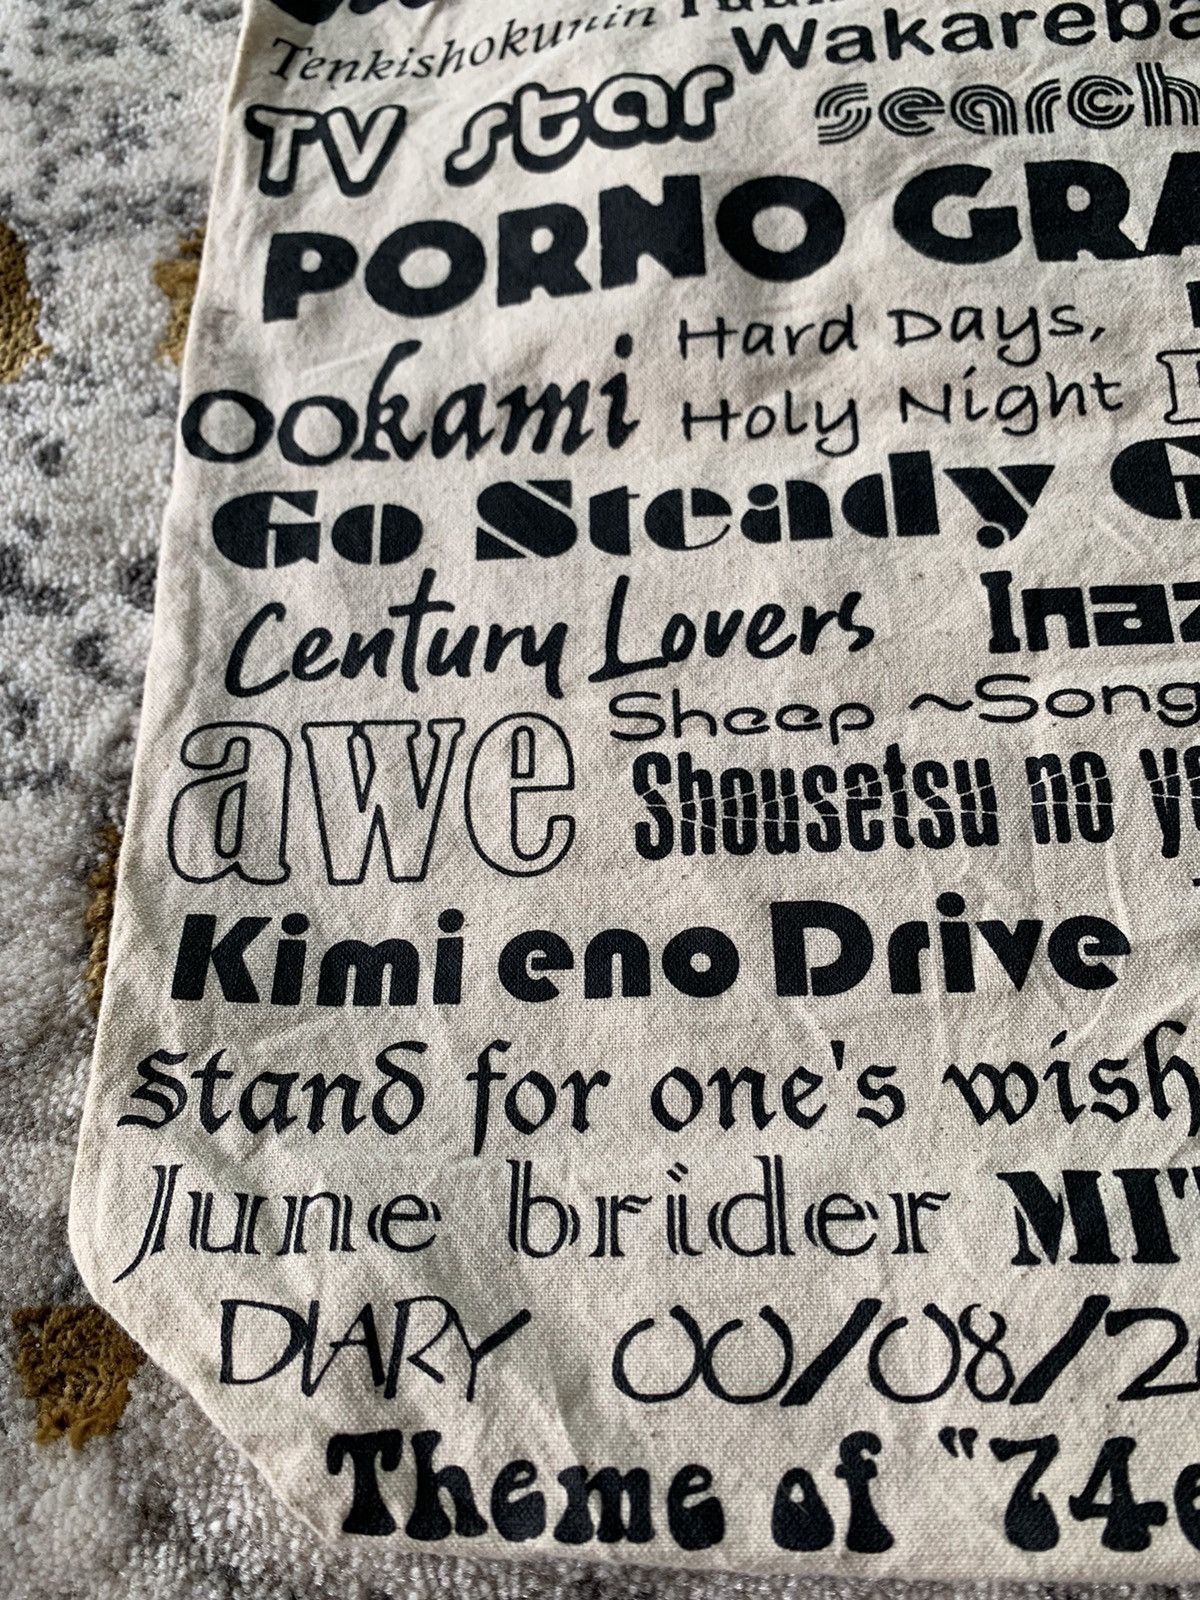 Tenkishokunin
Wakareba
TV star
search
PORNO GRA
Ookami
Hard Days,
Holy Night
Go Steady G
Century Lovers
Inaz
awe
Sheep ~Song
Shousetsu no y
Kimi eno Drive
Stand for one's wish
June brider
MI
DIARY 00/08/2
Theme of "74